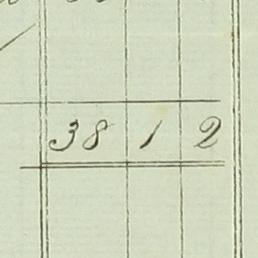 38 1 2